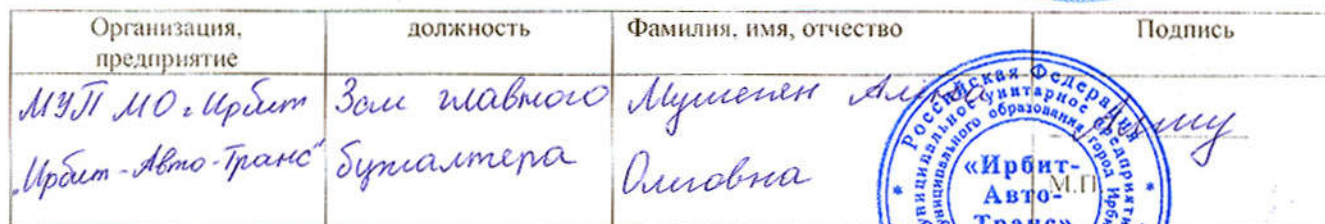 Организация, предприятие
должность
Фамилия, имя, отчество
Подпись
МУП МО г. Ирбит
Зам главного
"Ирбит-Авто-Транс"
бухгалтера
Олеговна
Российская Федерация
Муниципальное унитарное предприятие
муниципального образования город Ирбит
«Ирбит-
Авто-
Транс»
М.П.